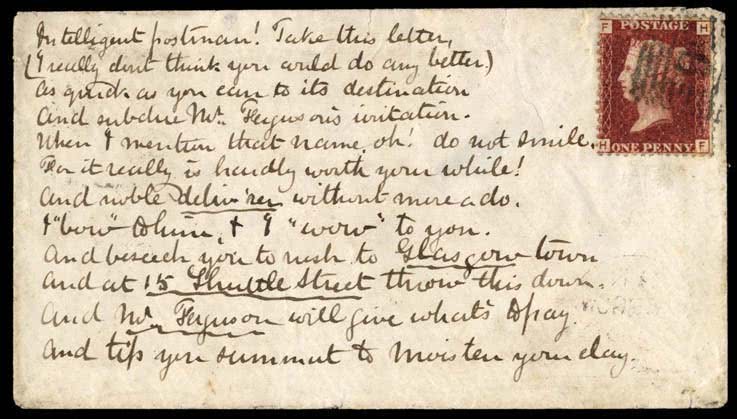 Intelligent postman! Take this letter,
(I really dont think you could do any better.)
as quick as you can to its destination
And subdue Mr. Ferguson's irritation.
When I mention that name, oh! do not smile,
For it really is hardly worth your while!
And noble deliv'rer without more ado.
I "bow" & & I "wow" to you.
And beseech you to rush to Glasgow town
and at 15 Shuttle Street throw this down.
And Mr. Ferguson will give what's to pay
And tip you summut to moisten your clay.
F POSTAGE H
H ONE PENNY F